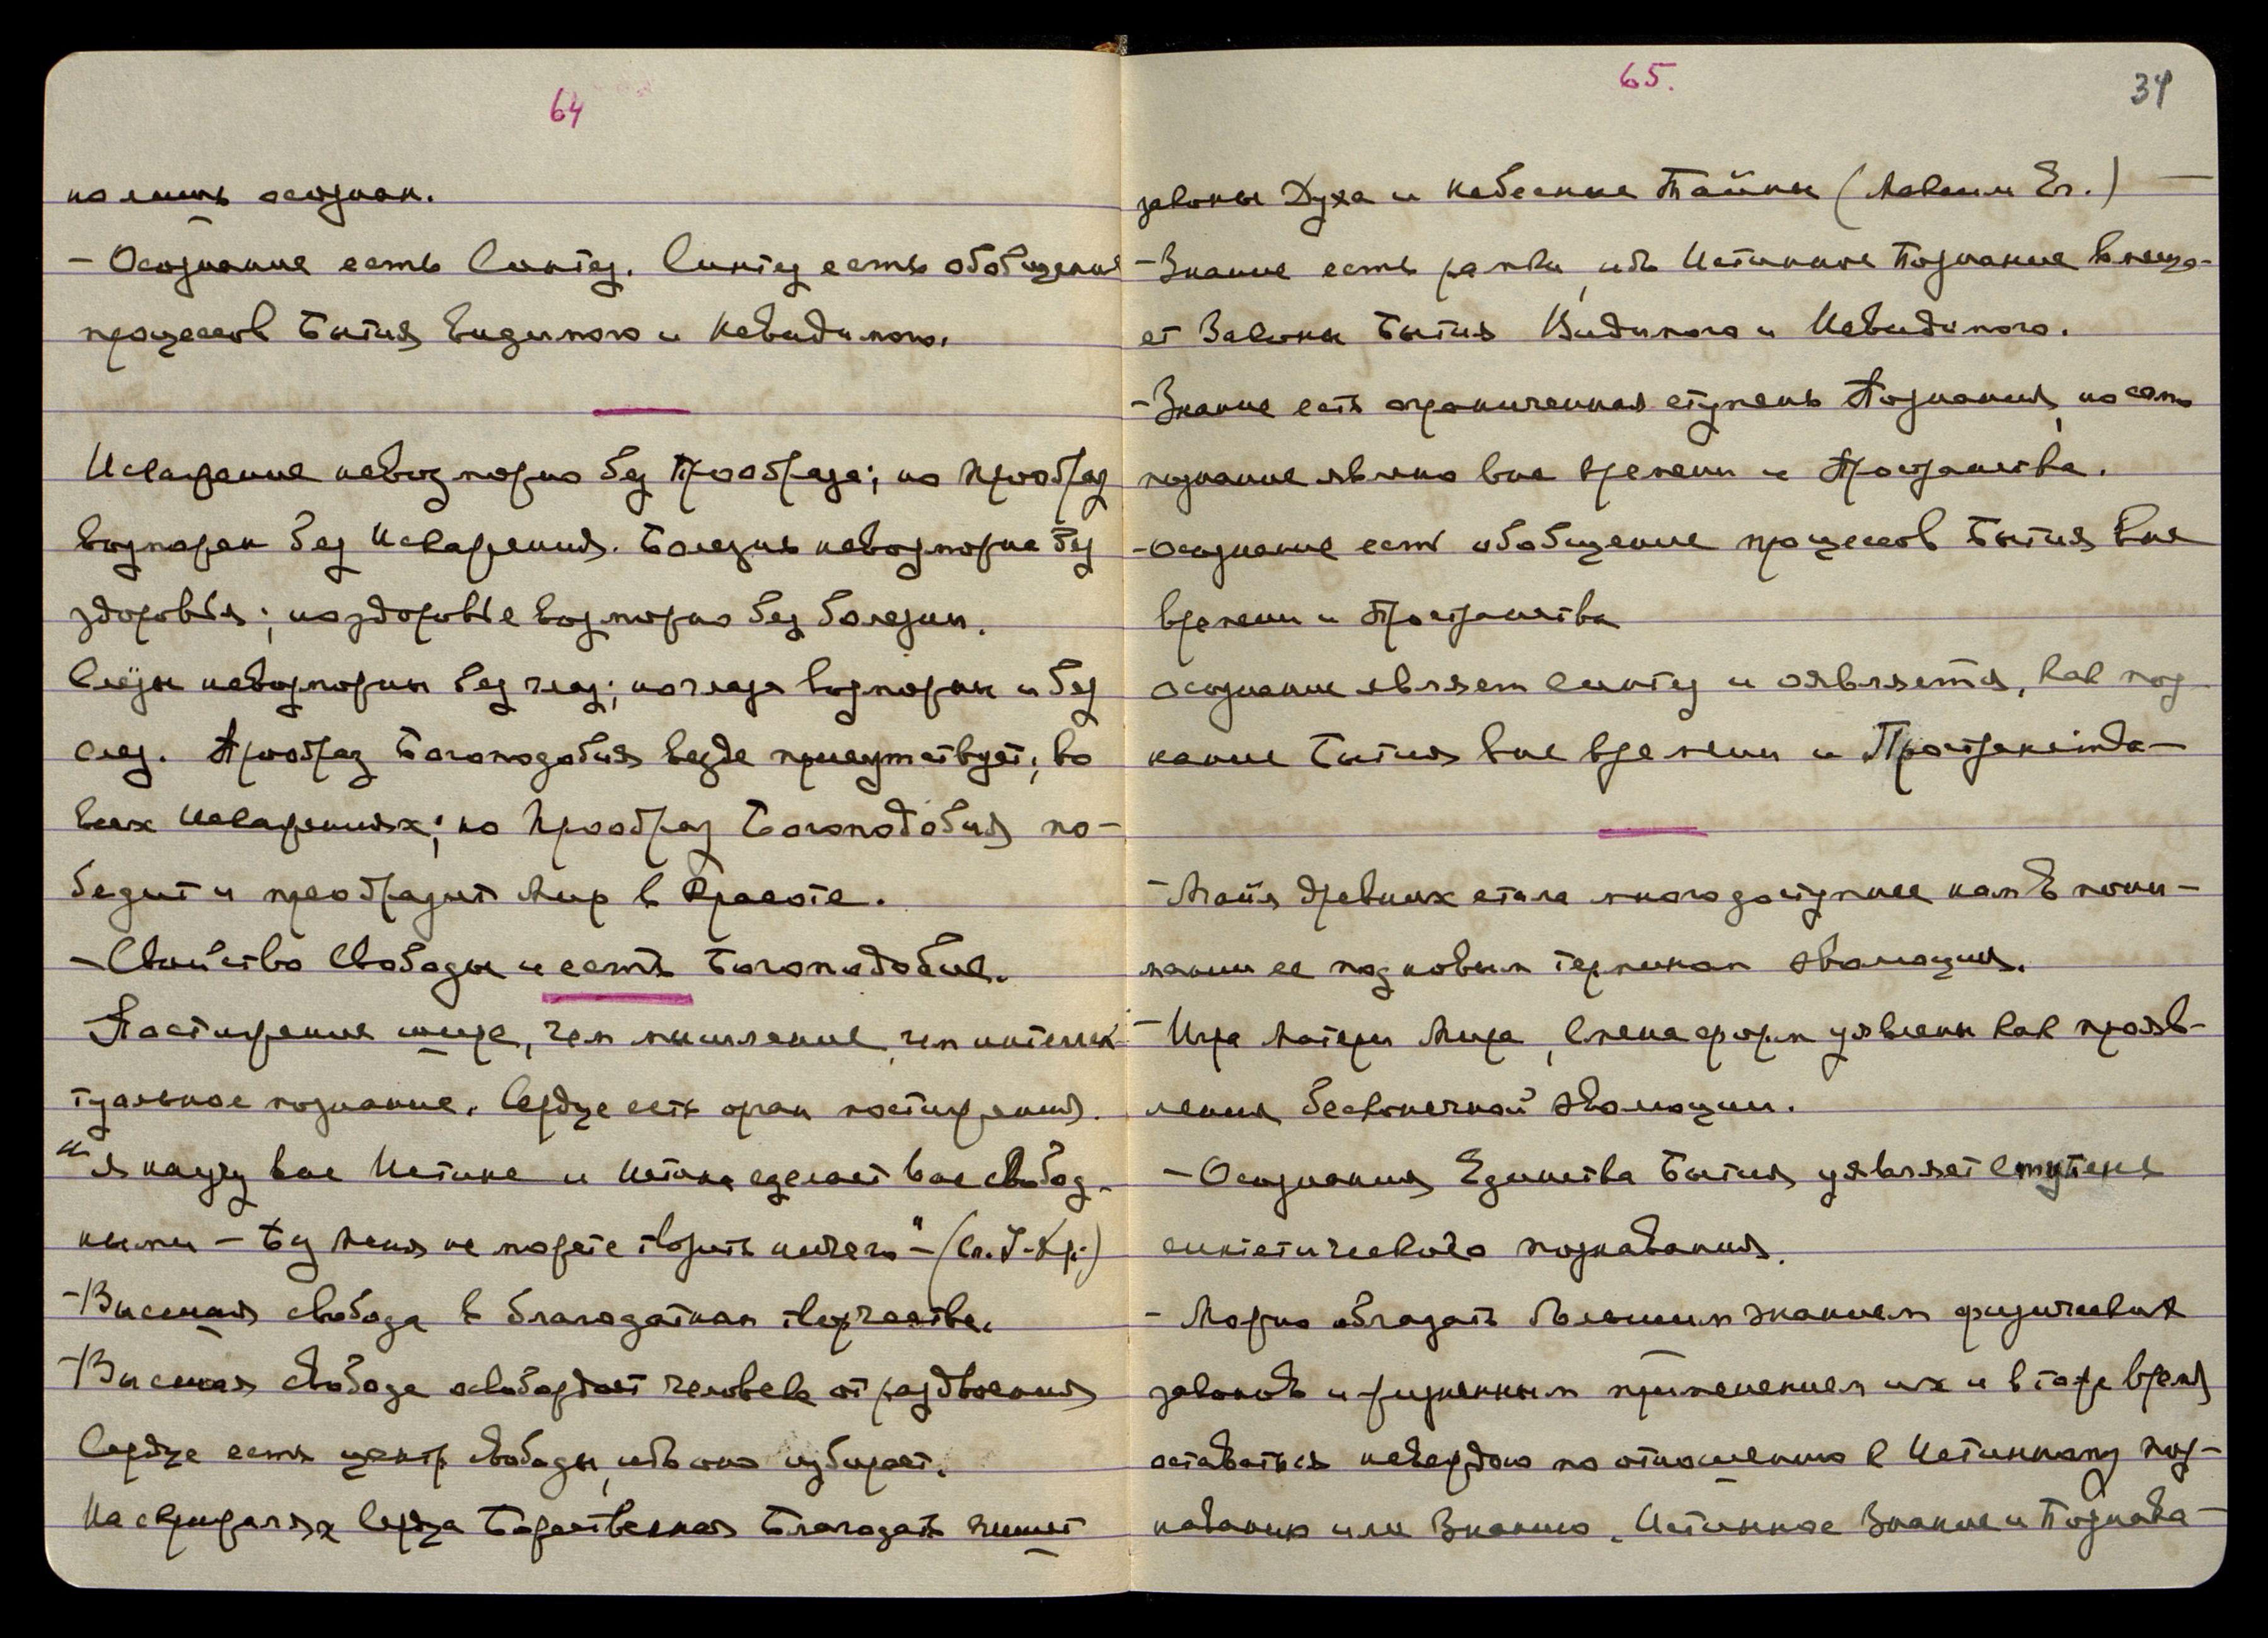 64
но лишь осознан.
- Осознание есть Синтез. Синтез есть обобщение
процессов Бытия Видимого и Невидимого.
Искажение невозможно без Прообраза; но Прообраз
возможен без Искажения. Болезнь невозможна без
здоровья; но здоровье возможно без болезни.
Слёзы невозможны без глаз; но глаза возможны и без
слез. Прообраз Богоподобия везде присутствует, во
всех Искажениях; но Прообраз Богоподобия по-
бедит и преобразит Мир в Красоте.
- Свойство Свободы и есть Богоподобие.
Постижение шире, чем мышление, чем интеллек-
туальное познание. Сердце есть орган постижения.
"Я научу вас Истине и Истина сделает вас свобод-
ными - Без Меня не можете творить ничего" - (Сл. І. Хр.)
- Высшая свобода в благодатном творчестве.
- Высшая свобода освобождает человека от раздвоения
Сердце есть центр свободы, ибо оно избирает.
На скрижалях Сердца Божественная Благодать пишет
65.
34
законы Духа и Небесные Тайны (Макарий Ег.) —
- Знание есть рамки, ибо Истинное Познание вмеща-
ет Законы Бытия Видимого и Невидимого.
- Знание есть ограниченная ступень Познания, но само
познание явлено вне времени и Пространства.
- Осознание есть обобщение процессов Бытия вне
времени и Пространства
осознание являет синтез и оявляется, как поз-
нание Бытия вне времени и Пространства —
- Майя древних стала много доступнее намъ пони-
мании ее под новым термином эволюция.
- Игра Матери Мира, Смена форм уявлены как прояв-
ления бесконечной эволюции.
- Осознания Единства Бытия уявляет ступени
синтетического познавания.
- Можно обладать большим знанием физических
законовъ и жизненным применением их и в тоже время
оставаться невеждою по отношению к Истинному поз-
наванию или Знанию. Истинное Знание и Познава-